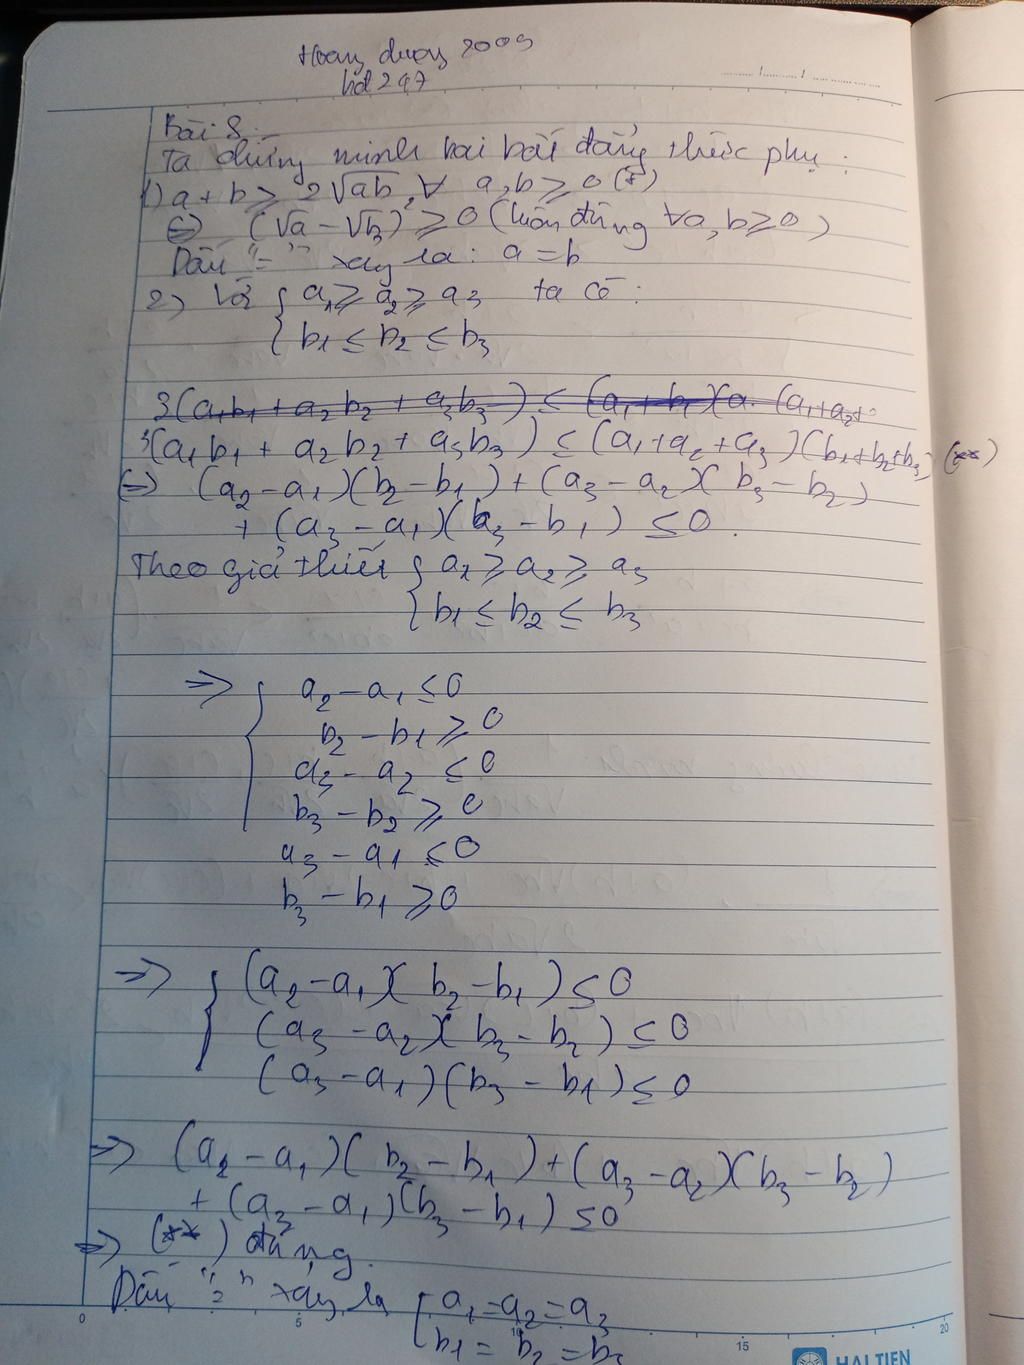 Hoang duong 2009
hd 247
Bài 8:
Ta chứng minh hai bất đẳng thức phụ:
1) a + b ≥ 2√ab, ∀ a, b ≥ 0 (*)
⇔ (√a − √b)² ≥ 0 (luôn đúng ∀a, b ≥ 0)
Dấu "=" xảy ra: a = b
2) Với { a₁ ≥ a₂ ≥ a₃ ta có:
{ b₁ ≤ b₂ ≤ b₃
3(a₁b₁ + a₂b₂ + a₃b₃) ≤ (a₁ + b₁)(a. (a₁+a₂+
3(a₁b₁ + a₂b₂ + a₃b₃) ≤ (a₁+a₂+a₃)(b₁+b₂+b₃) (**)
⇔ (a₂−a₁)(b₂−b₁) + (a₃−a₂)(b₃−b₂)
+ (a₃−a₁)(b₃−b₁) ≤ 0.
Theo giả thiết { a₁ ≥ a₂ ≥ a₃
{ b₁ ≤ b₂ ≤ b₃
⇒ { a₂−a₁ ≤ 0
b₂−b₁ ≥ 0
a₃−a₂ ≤ 0
b₃−b₂ ≥ 0
a₃−a₁ ≤ 0
b₃−b₁ ≥ 0
⇒ { (a₂−a₁)(b₂−b₁) ≤ 0
(a₃−a₂)(b₃−b₂) ≤ 0
(a₃−a₁)(b₃−b₁) ≤ 0
⇒ (a₂−a₁)(b₂−b₁)+(a₃−a₂)(b₃−b₂)
+ (a₃−a₁)(b₃−b₁) ≤ 0
⇒ (**) đúng.
Dấu "=" xảy ra { a₁=a₂=a₃
{ b₁ = b₂ = b₃
0 5 10 15 20
HẢI TIẾN